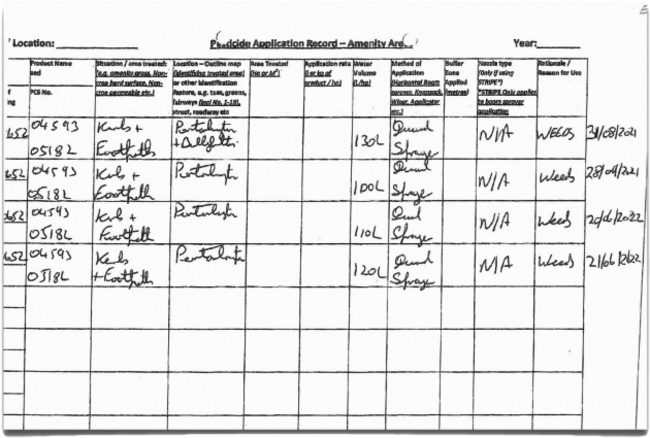 Location:
Pesticide Application Record – Amenity Areas
Year:
Product Name and PCS No.
Situation / area treated: (e.g. amenity grass, Non-crop hard surface, Non-crop permeable etc.)
Location – Outline map (identifying treated area) or other identification feature, e.g. tees, greens, fairways (incl No. 1-18), street, roadway etc
Area Treated (Ha or M²)
Application rate (l or kg of product / ha)
Water Volume (L/ha)
Method of Application (Horizontal Boom sprayer, Knapsack, Wiper, Applicator etc.)
Buffer Zone Applied (metres)
Nozzle type (Only if using STRIPE*) *STRIPE Only applies to boom sprayer application
Rationale / Reason for Use
652 04593 Kerbs + 130L Quad N/A Weeds 31/08/2021
05182 Footpaths Spraye
652 04593 Kerb + 100L Quad N/A Weeds
05182 Footpath Spraye
652 04593 Kerb + 110L Quad N/A Weeds
05182 Footpath Spraye
652 04593 Kerb 120L Quad N/A Weeds 21/06/2022
05182 + Footpath Spraye